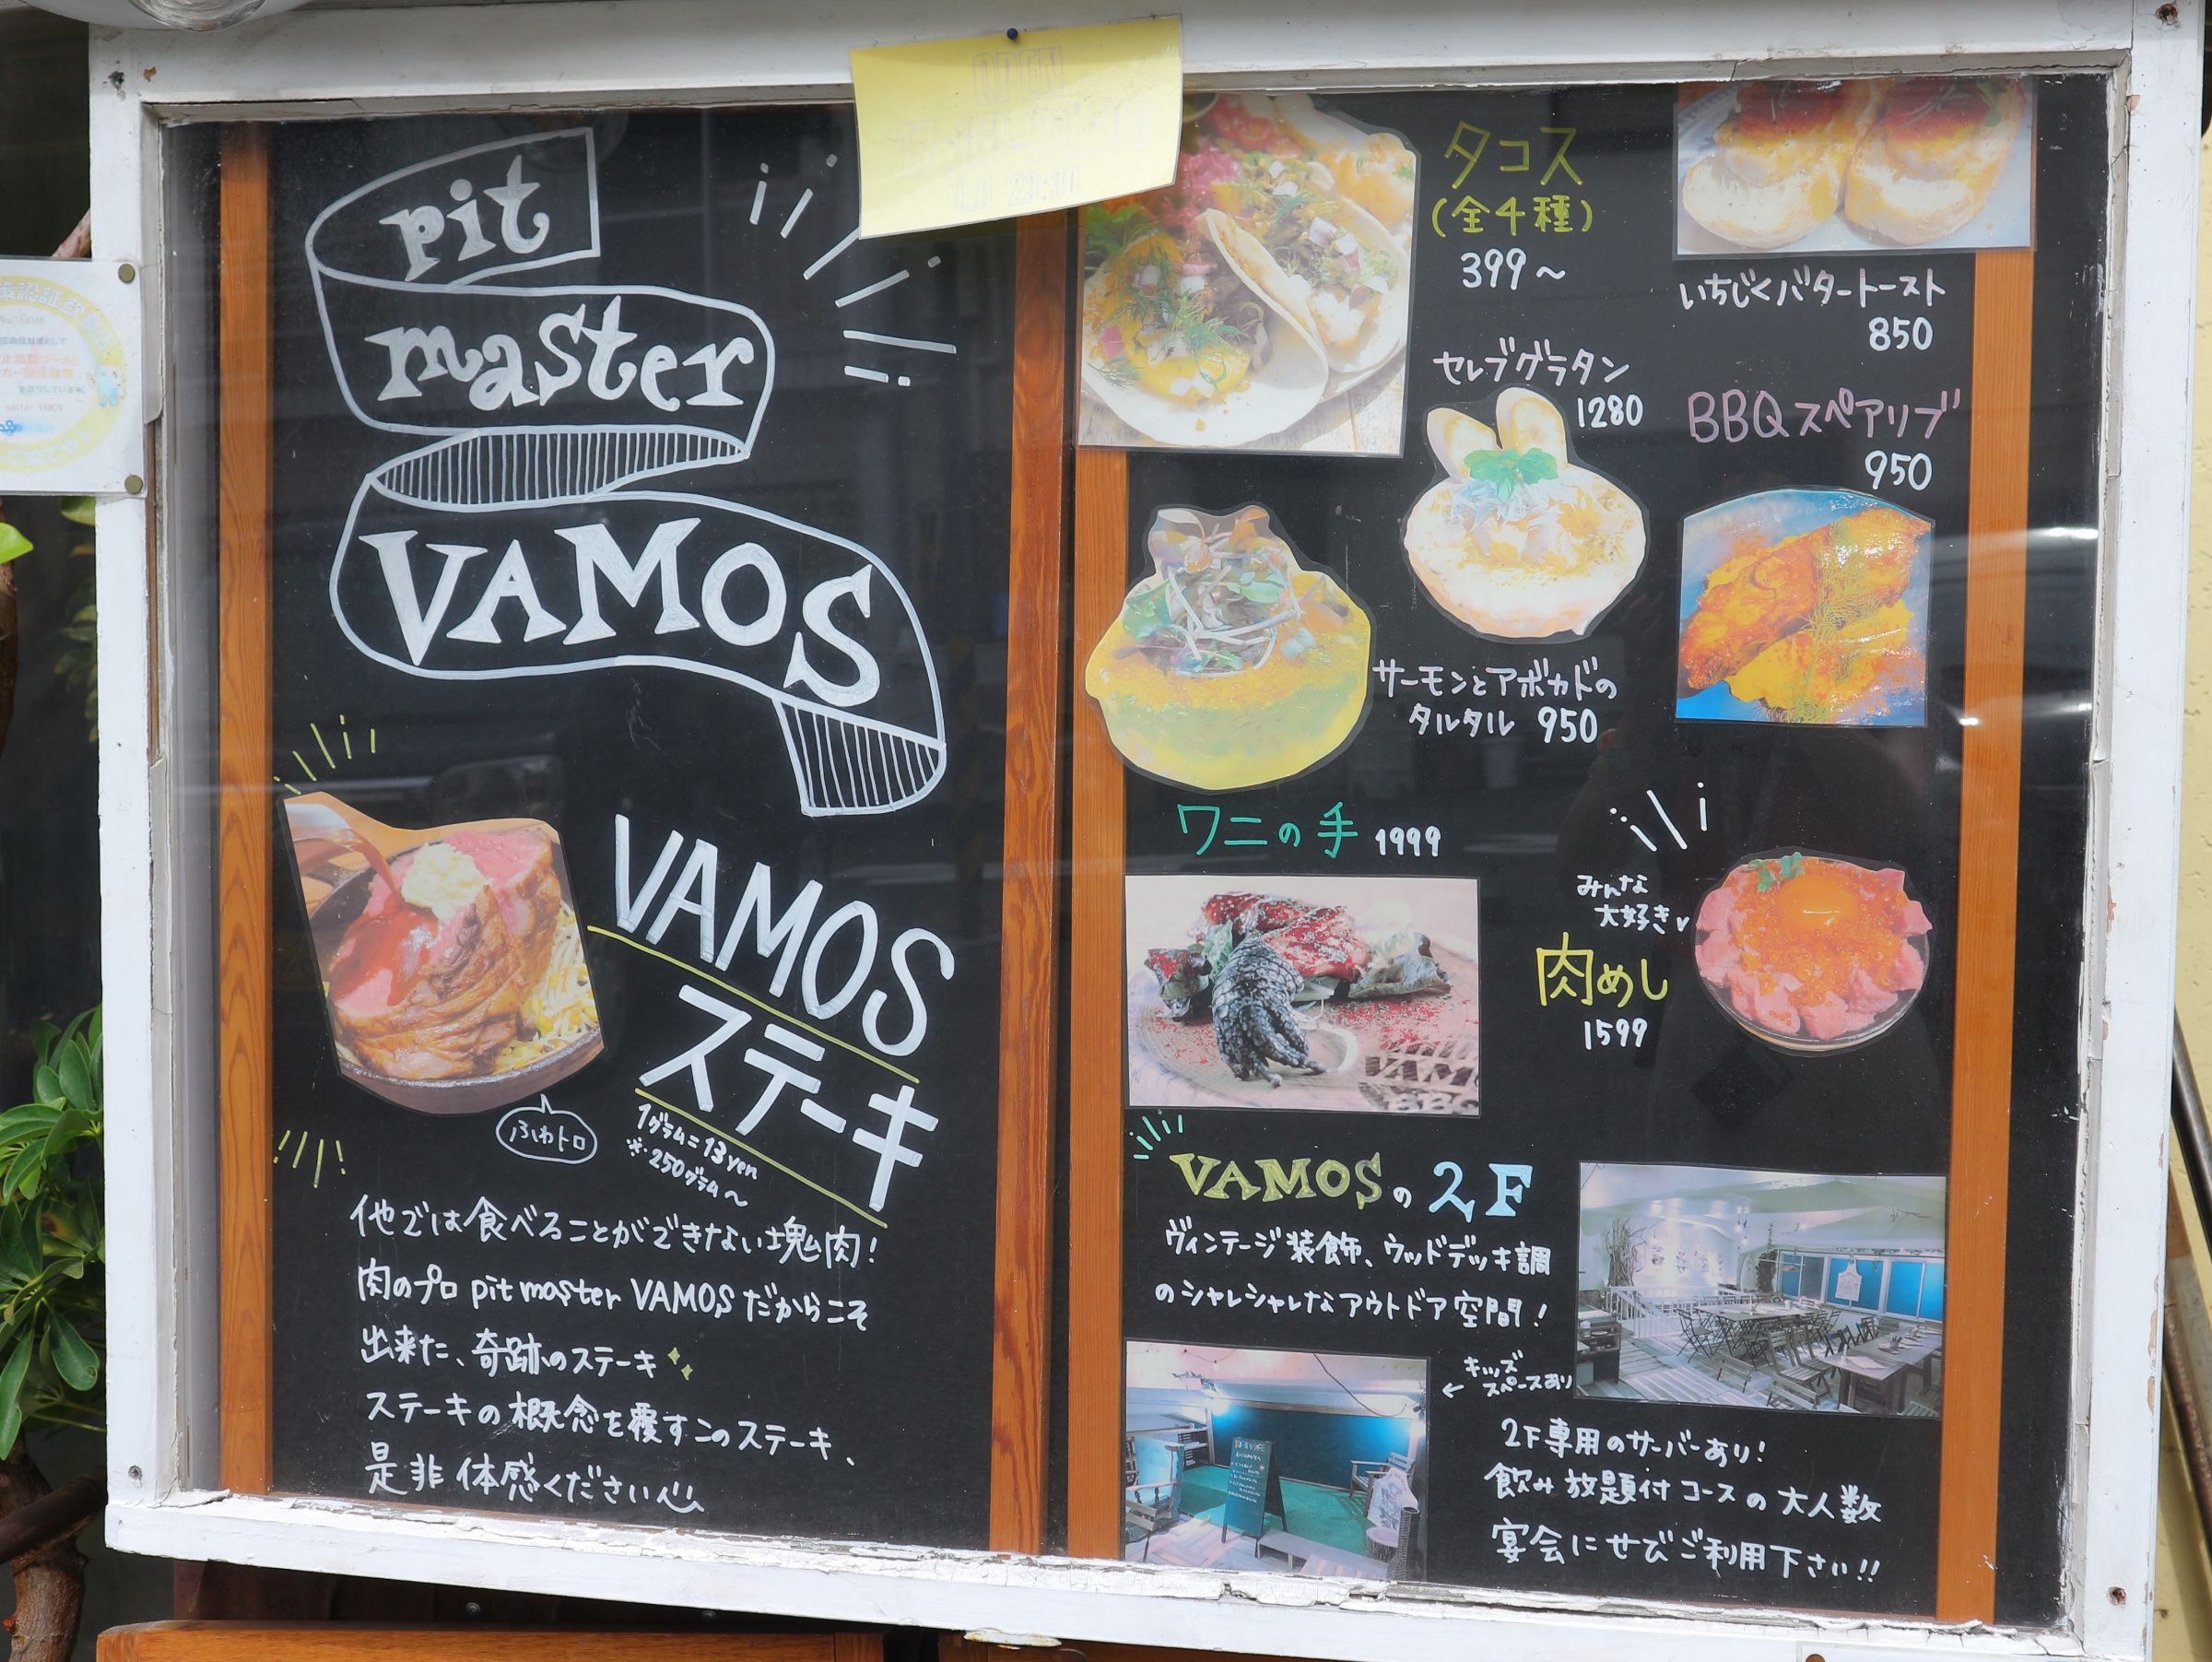 pit
master
VAMOS
VAMOS
ステーキ
1グラム=13yen
※250グラム〜
ふわトロ
他では食べることができない塊肉!
肉のプロ pit master VAMOS だからこそ
出来た、奇跡のステーキ
ステーキの概念を覆すこのステーキ、
是非体感ください
OPEN
L.O 23:30
タコス
(全4種)
399〜
いちじくバタートースト
850
セレブグラタン
1280
BBQスペアリブ
950
サーモンとアボカドの
タルタル 950
ワニの手 1999
みんな
大好き
肉めし
1599
VAMOSの2F
ヴィンテージ装飾、ウッドデッキ調
のシャレシャレなアウトドア空間!
キッズ
← スペースあり
2F専用のサーバーあり!
飲み放題付コースの大人数
宴会にぜひご利用下さい!!